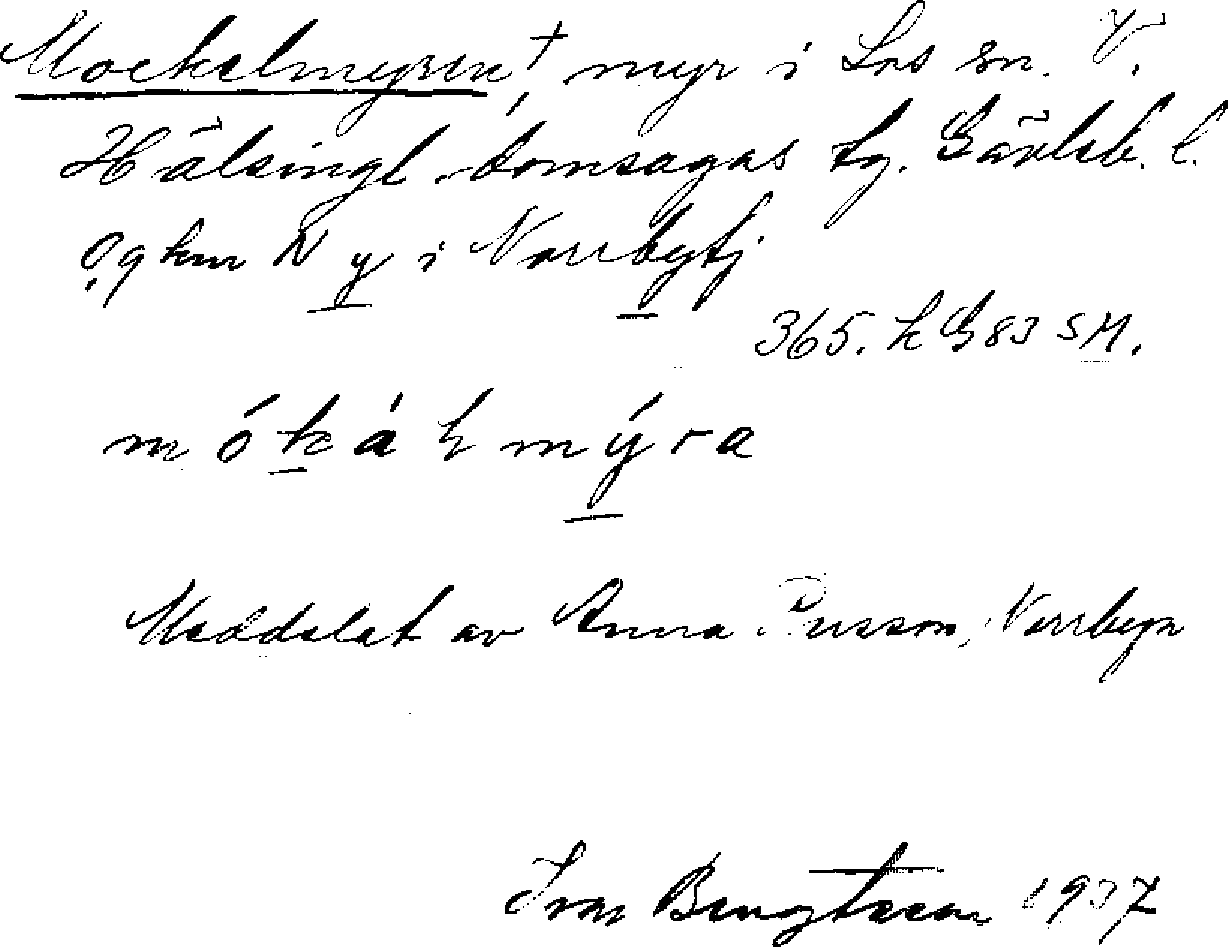 Mockelmyren†, myr i Los sn. V.
Hälsingl. domsagas tg. Gävleb. l.
0,9 km N y i Norrbytj
365. k G 83 SM.
m ó k á l m ý r a
Meddelat av Anna Persson, Norrbyn
Ivar Bengtsson 1937